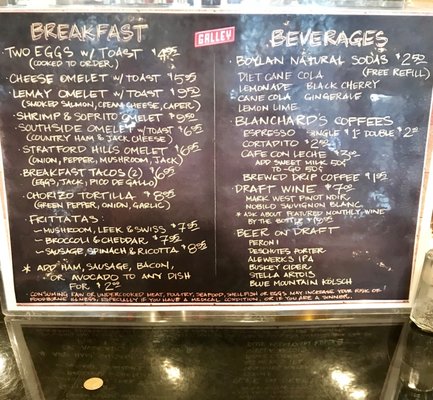 BREAKFAST
TWO EGGS w/ TOAST
(COOKED TO ORDER)
CHEESE OMELET w/ TOAST $5.95
LEMAY OMELET w/ TOAST $9.50
(SMOKED SALMON, CREAM CHEESE, CAPER)
SHRIMP & SOFRITO OMELET
SOUTHSIDE OMELET w/ TOAST
(COUNTRY HAM & JACK CHEESE)
STRATFORD HILLS OMELET
(ONION, PEPPER, MUSHROOM, JACK)
BREAKFAST TACOS (2)
(EGGS, JACK, PICO DE GALLO)
CHORIZO TORTILLA
(GREEN PEPPER, ONION, GARLIC)
FRITTATAS:
- MUSHROOM, LEEK & SWISS
- BROCCOLI & CHEDDAR
- SAUSAGE, SPINACH & RICOTTA
* ADD HAM, SAUSAGE, BACON,
OR AVOCADO TO ANY DISH
FOR $2.50
GALLEY
BEVERAGES
BOYLAN NATURAL SODAS $2.50
(FREE REFILL)
DIET CANE COLA
LEMONADE BLACK CHERRY
CANE COLA GINGERALE
LEMON LIME
BLANCHARD'S COFFEES
ESPRESSO SINGLE DOUBLE
CORTADITO
CAFE CON LECHE
ADD SWEET MILK 50¢
TO-GO 50¢
BREWED DRIP COFFEE
DRAFT WINE
MARK WEST PINOT NOIR
NOBILO SAUVIGNON BLANC
* ASK ABOUT FEATURED MONTHLY WINE
BY THE BOTTLE
BEER ON DRAFT
PERONI
DESCHUTES PORTER
ALEWERKS IPA
BUSKEY CIDER
STELLA ARTOIS
BLUE MOUNTAIN KÖLSCH
CONSUMING RAW OR UNDERCOOKED MEAT, POULTRY, SEAFOOD, SHELLFISH OR EGGS MAY INCREASE YOUR RISK OF
FOODBORNE ILLNESS, ESPECIALLY IF YOU HAVE A MEDICAL CONDITION. OR IF YOU ARE A SINNER.